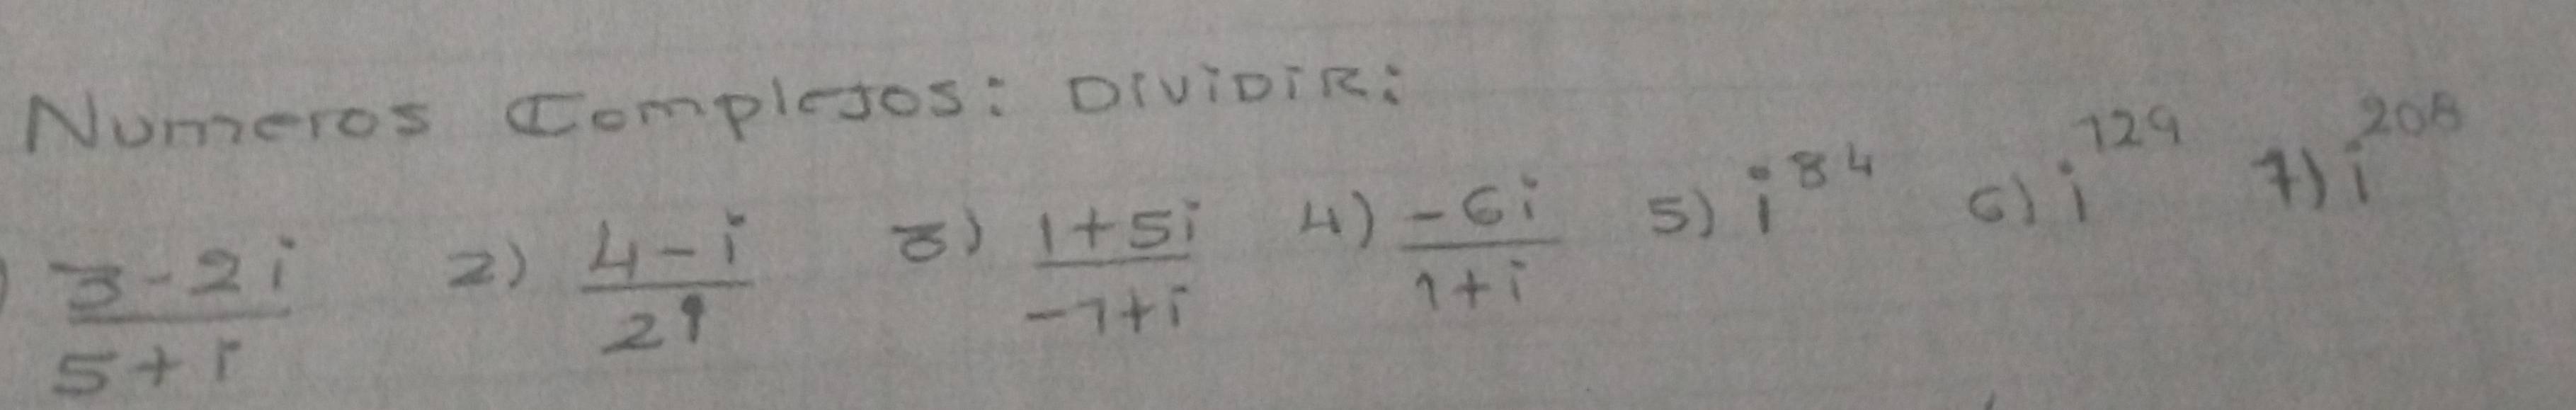 Numeros Complejos: DIVIDIR:
) 3-2i / 5+i 2) 4-i / 2i 3) 1+5i / -1+i 4) -6i / 1+i 5) i^84 6) i^129 7) i^208